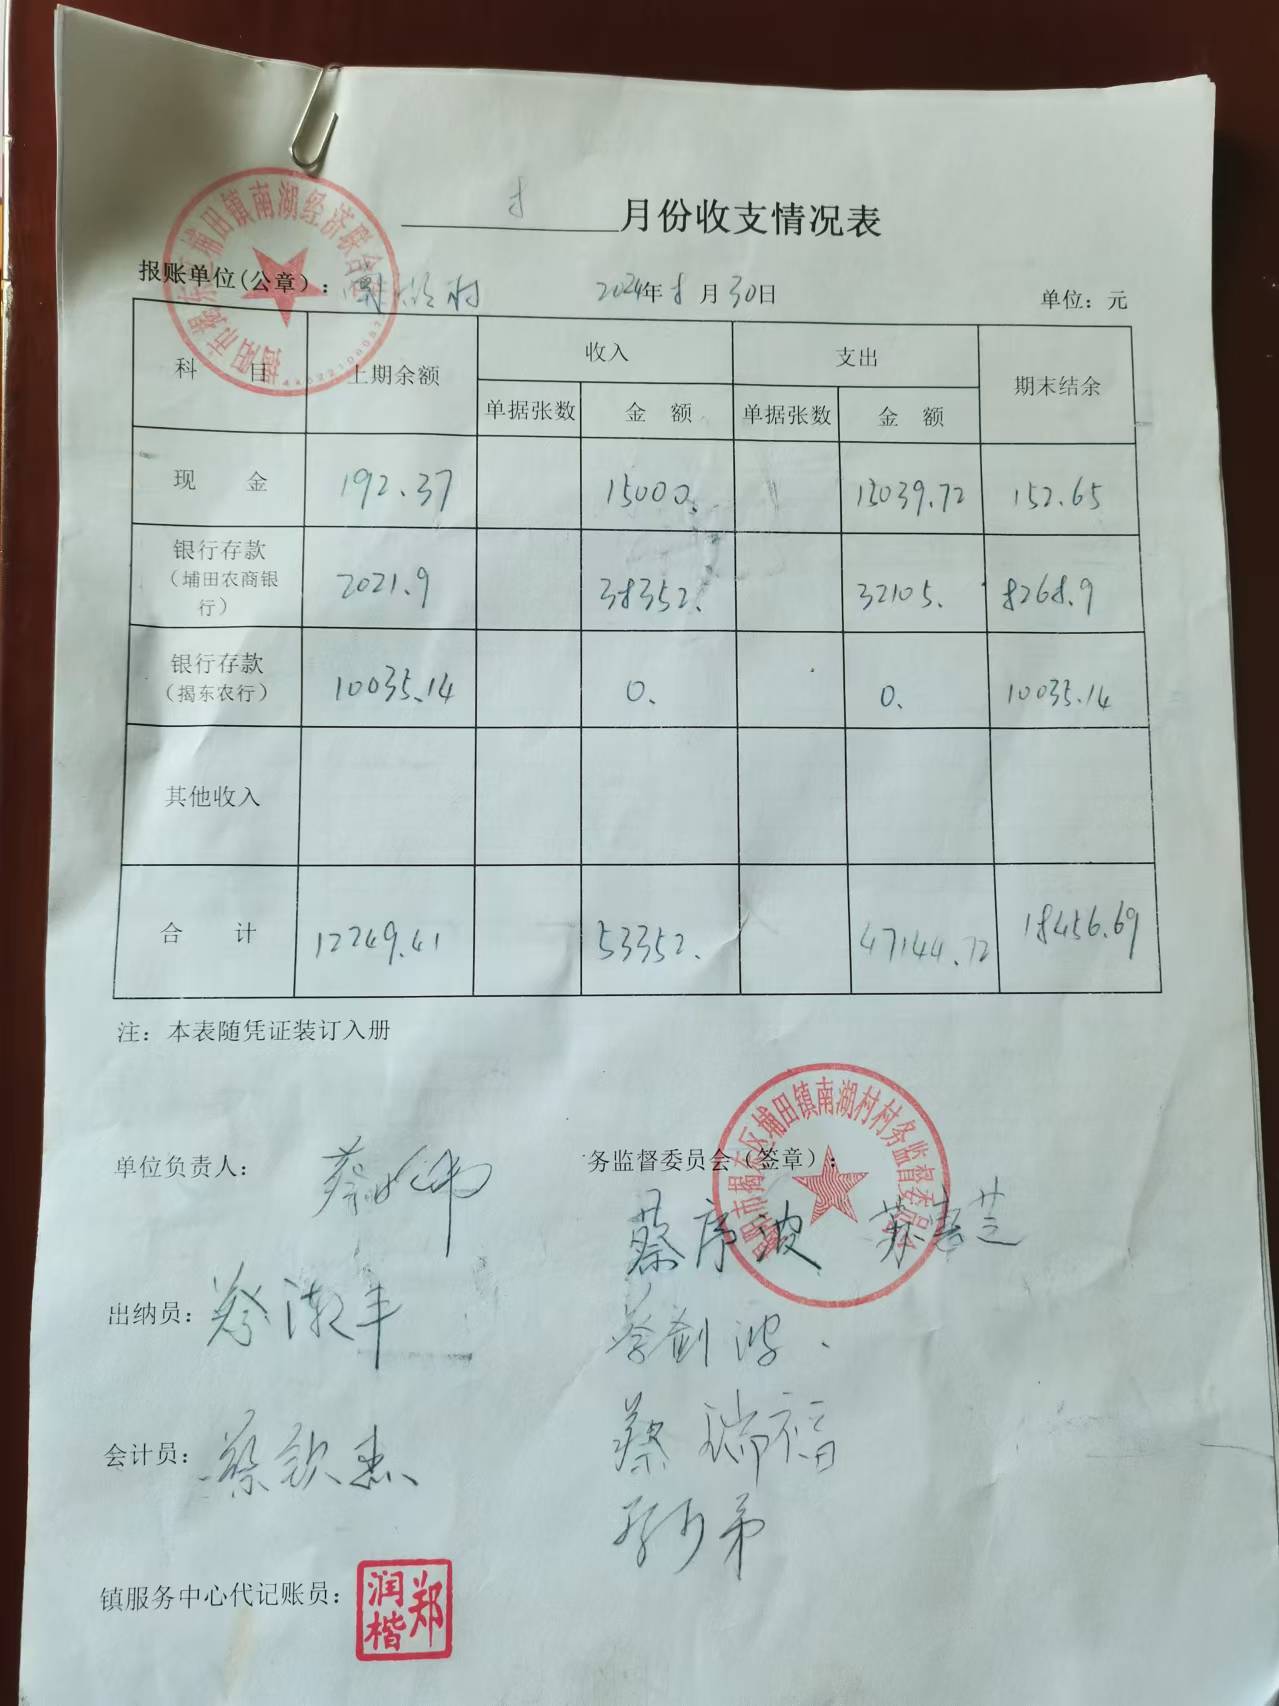 8月份收支情况表
揭阳市揭东区埔田镇南湖经济联合社
报账单位(公章）：南湖村 2024年8月30日 单位：元
科 目 上期余额 收入 支出 期末结余
单据张数 金 额 单据张数 金 额
现 金 192.37 15000. 15039.72 152.65
银行存款
（埔田农商银
行） 2021.9 38352. 32105. 8268.9
银行存款
（揭东农行） 10035.14 0. 0. 10035.14
其他收入
合 计 12249.41 53352. 47144.72 18456.69
注：本表随凭证装订入册
揭阳市揭东区埔田镇南湖村村务监督委员会
单位负责人： 务监督委员会（签章）：
蔡序波
出纳员：蔡潮丰
蔡剑波
会计员：蔡钦杰
蔡瑞福
镇服务中心代记账员：郑润楷